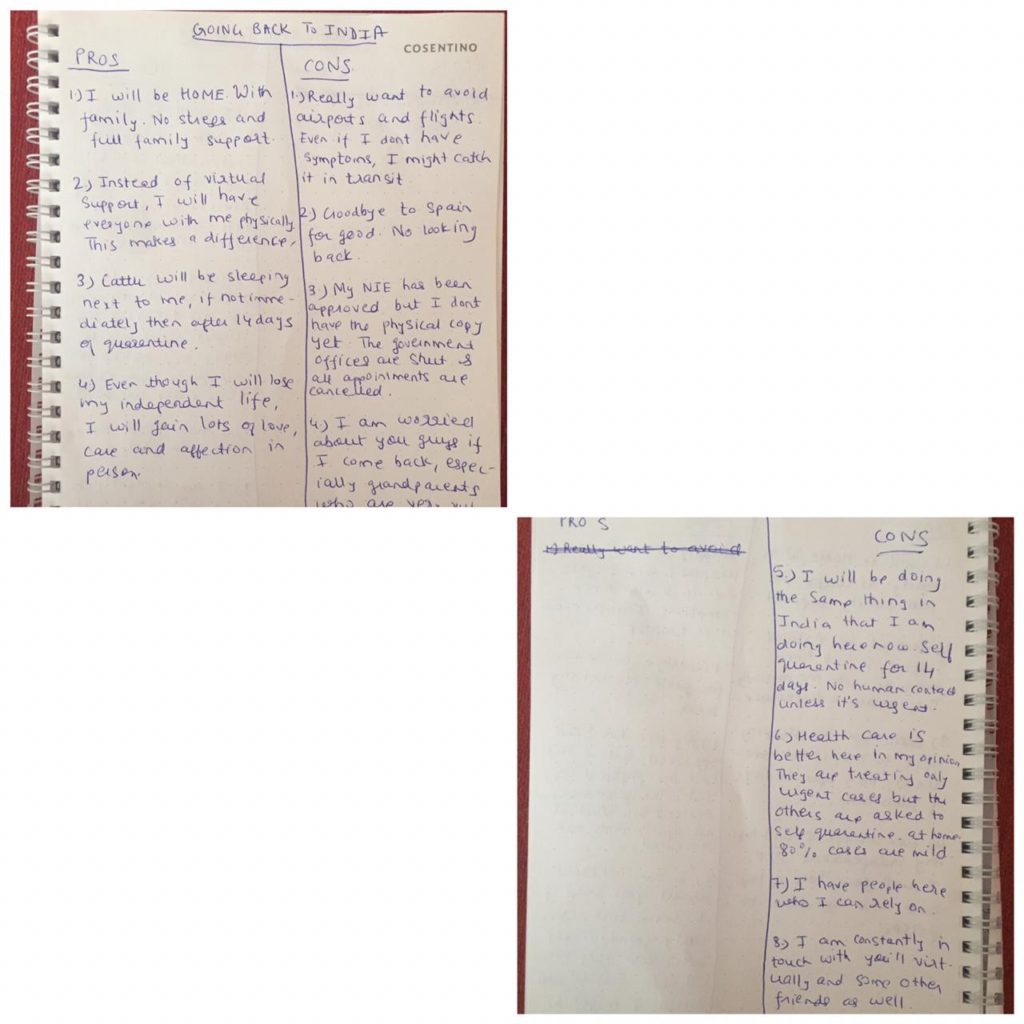 GOING BACK TO INDIA
COSENTINO
PROS
1.) I will be HOME. With
family. No stress and
full family support.
2.) Instead of virtual
support, I will have
everyone with me physically
This makes a difference.
3.) Cattu will be sleeping
next to me, if not imme-
diately then after 14 days
of quarentine.
4.) Even though I will lose
my independent life,
I will gain lots of love,
care and affection in
person.
CONS
1.) Really want to avoid
airports and flights.
Even if I dont have
symptoms, I might catch
it in transit
2.) Goodbye to Spain
for good. No looking
back.
3.) My NIE has been
approved but I dont
have the physical copy
yet. The government
offices are shut &
all appointments are
cancelled.
4.) I am worried
about you guys if
I come back, espec-
ially grandparents
who are
PROS
1.) Really want to avoid
CONS
5.) I will be doing
the same thing in
India that I am
doing here now. Self
quarentine for 14
days. No human contact
unless it's urgent.
6.) Health care is
better here in my opinion
They are treating only
urgent cases but the
others are asked to
self quarentine at home.
80% cases are mild.
7.) I have people here
who I can rely on.
8.) I am constantly in
touch with you'll virt-
ually and some other
friends as well.